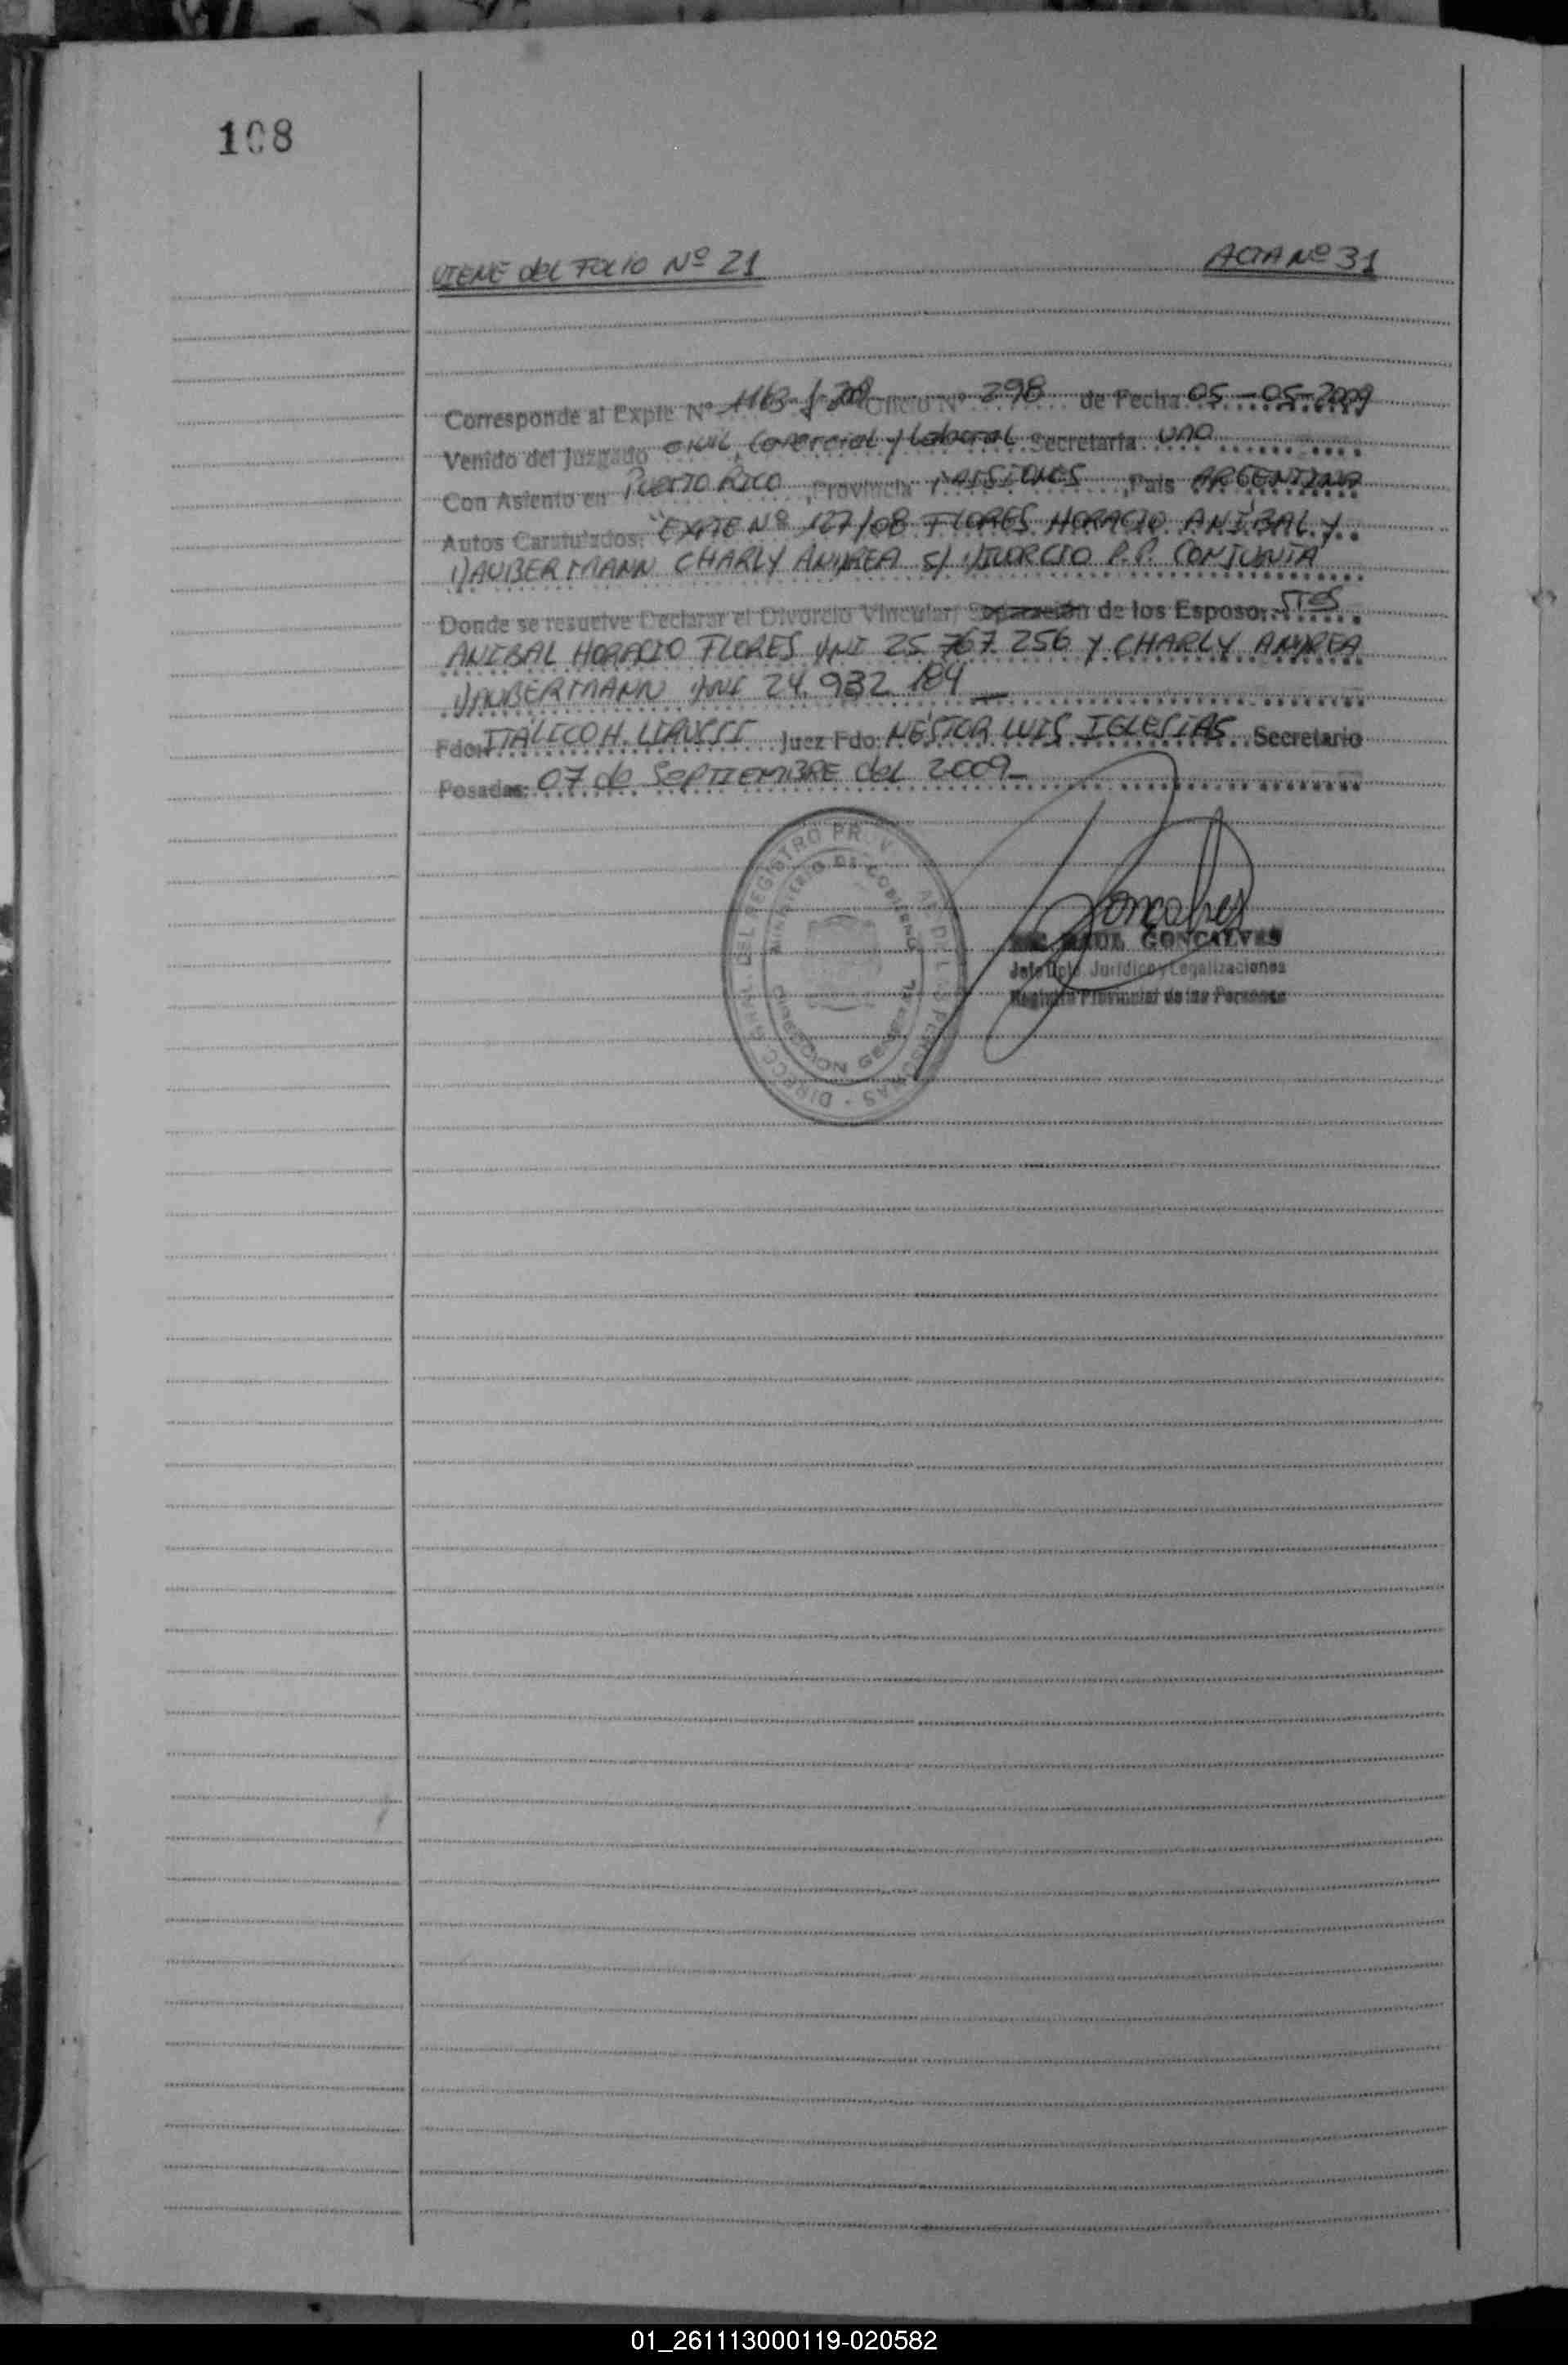 108
VIENE del FOLIO Nº 21 ACTA Nº 31
Corresponde al Expte Nº 1163-J-2009 Oficio Nº 298 de Fecha 05-05-2009
Venido del Juzgado CIVIL, Comercial y Laboral Secretaria UNO
Con Asiento en PUERTO RICO, Provincia MISIONES, Pais ARGENTINA
Autos Caratulados: "EXPTE Nº 127/08 FLORES HORACIO ANÍBAL Y
DAUBERMANN CHARLY ANDREA S/ DIVORCIO P.P. CONJUNTA"
Donde se resuelve Declarar el Divorcio Vincular, Separación de los Esposo: STES
ANIBAL HORACIO FLORES DNI 25.767.256 Y CHARLY ANDREA
DAUBERMANN DNI 24.932.184
Fdo: ITÁLICO H. Juez Fdo: NÉSTOR LUIS IGLESIAS Secretario
Posadas: 07 de SEPTIEMBRE del 2009
DIRECC. GRAL. DEL REGISTRO PROV. DE LAS PERSONAS
MINISTERIO DE GOBIERNO
DIRECCION GENERAL
RAUL GONCALVES
Jefe Dpto. Jurídico y Legalizaciones
Registro Provincial de las Personas
01_261113000119-020582